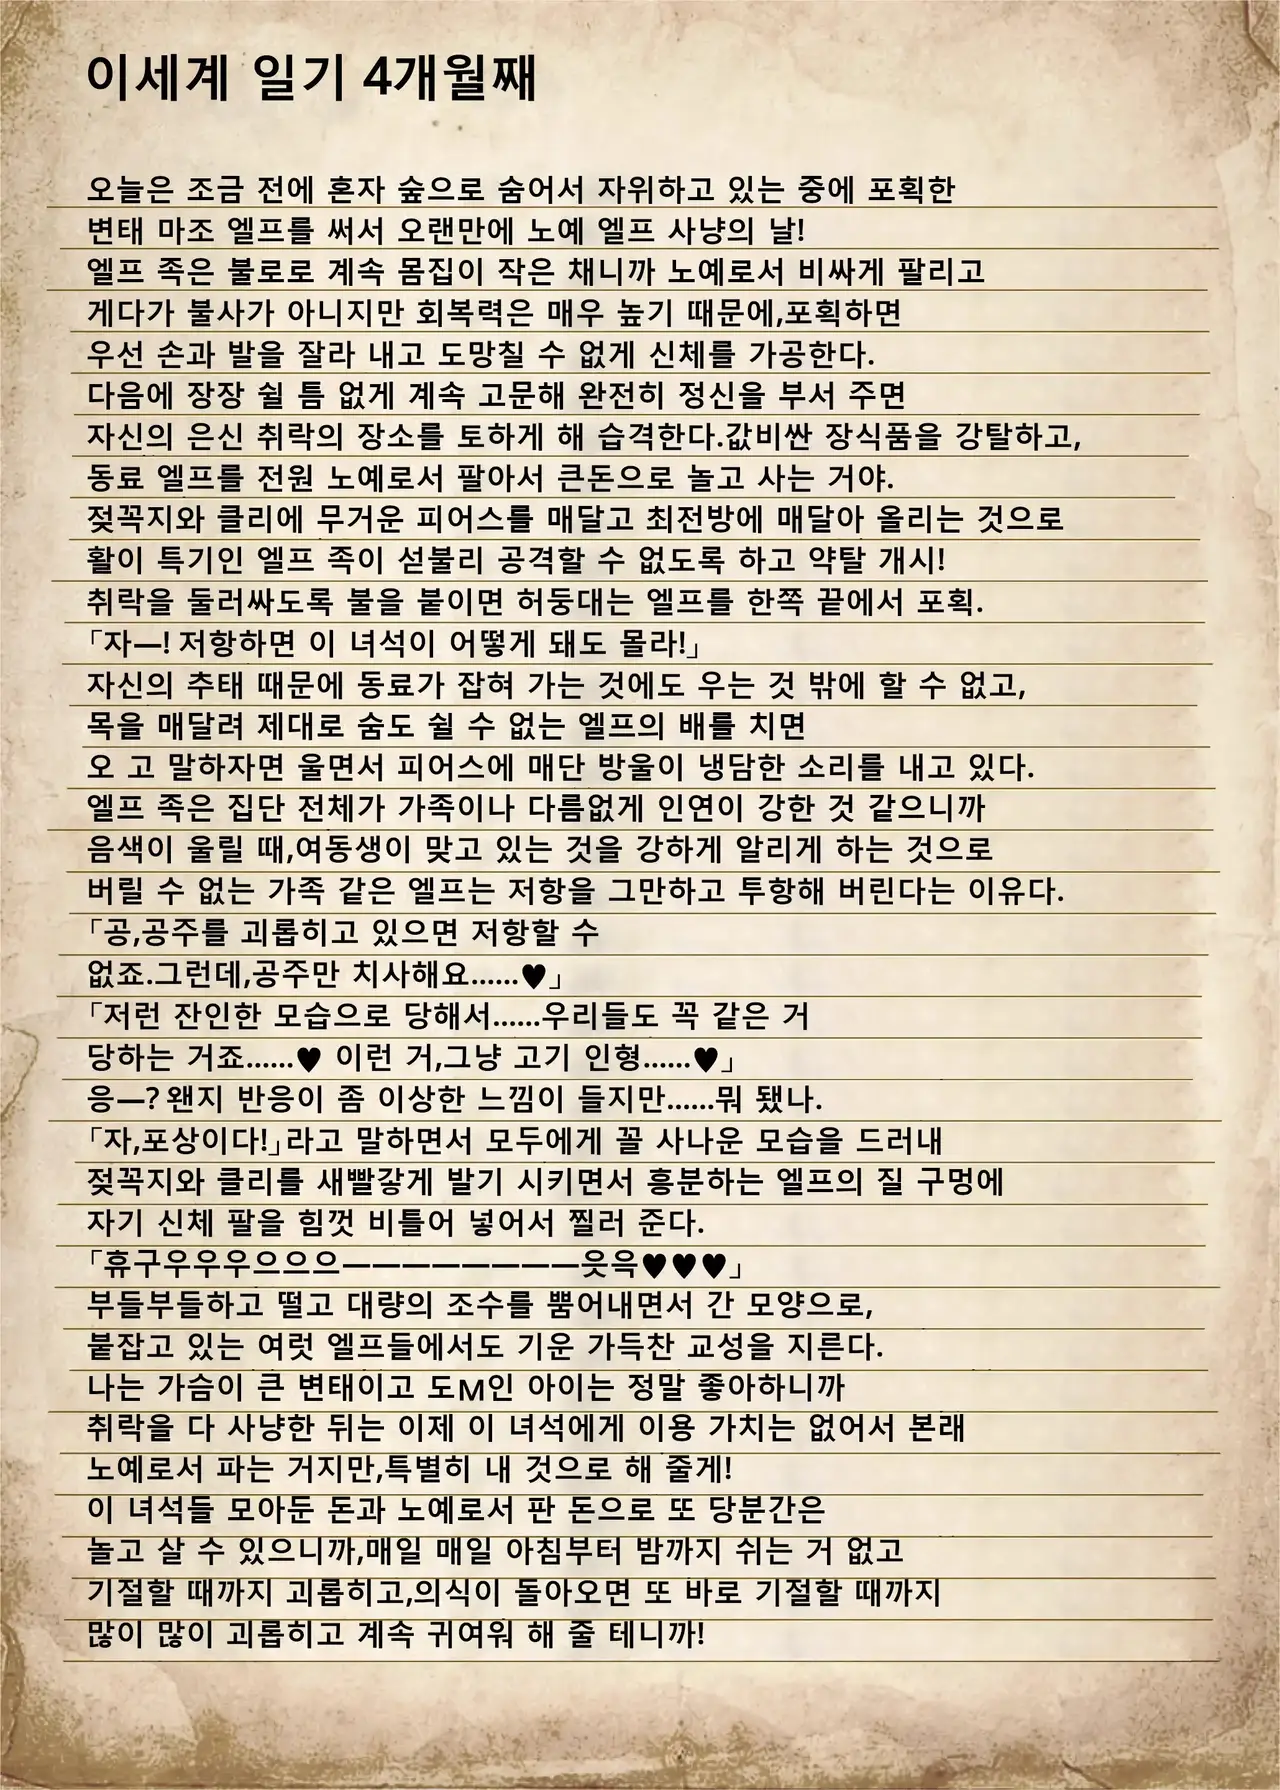 이세계 일기 4개월째
오늘은 조금 전에 혼자 숲으로 숨어서 자위하고 있는 중에 포획한
변태 마조 엘프를 써서 오랜만에 노예 엘프 사냥의 날!
엘프 족은 불로로 계속 몸집이 작은 채니까 노예로서 비싸게 팔리고
게다가 불사가 아니지만 회복력은 매우 높기 때문에,포획하면
우선 손과 발을 잘라 내고 도망칠 수 없게 신체를 가공한다.
다음에 장장 쉴 틈 없게 계속 고문해 완전히 정신을 부서 주면
자신의 은신 취락의 장소를 토하게 해 습격한다.값비싼 장식품을 강탈하고,
동료 엘프를 전원 노예로서 팔아서 큰돈으로 놀고 사는 거야.
젖꼭지와 클리에 무거운 피어스를 매달고 최전방에 매달아 올리는 것으로
활이 특기인 엘프 족이 섣불리 공격할 수 없도록 하고 약탈 개시!
취락을 둘러싸도록 불을 붙이면 허둥대는 엘프를 한쪽 끝에서 포획.
「자―! 저항하면 이 녀석이 어떻게 돼도 몰라!」
자신의 추태 때문에 동료가 잡혀 가는 것에도 우는 것 밖에 할 수 없고,
목을 매달려 제대로 숨도 쉴 수 없는 엘프의 배를 치면
오 고 말하자면 울면서 피어스에 매단 방울이 냉담한 소리를 내고 있다.
엘프 족은 집단 전체가 가족이나 다름없게 인연이 강한 것 같으니까
음색이 울릴 때,여동생이 맞고 있는 것을 강하게 알리게 하는 것으로
버릴 수 없는 가족 같은 엘프는 저항을 그만하고 투항해 버린다는 이유다.
「공,공주를 괴롭히고 있으면 저항할 수
없죠.그런데,공주만 치사해요……♥」
「저런 잔인한 모습으로 당해서……우리들도 꼭 같은 거
당하는 거죠……♥ 이런 거,그냥 고기 인형……♥」
응―? 왠지 반응이 좀 이상한 느낌이 들지만……뭐 됐나.
「자,포상이다!」라고 말하면서 모두에게 꼴 사나운 모습을 드러내
젖꼭지와 클리를 새빨갛게 발기 시키면서 흥분하는 엘프의 질 구멍에
자기 신체 팔을 힘껏 비틀어 넣어서 찔러 준다.
「휴구우우우으으으――――――――웃윽♥♥♥」
부들부들하고 떨고 대량의 조수를 뿜어내면서 간 모양으로,
붙잡고 있는 여럿 엘프들에서도 기운 가득찬 교성을 지른다.
나는 가슴이 큰 변태이고 도M인 아이는 정말 좋아하니까
취락을 다 사냥한 뒤는 이제 이 녀석에게 이용 가치는 없어서 본래
노예로서 파는 거지만,특별히 내 것으로 해 줄게!
이 녀석들 모아둔 돈과 노예로서 판 돈으로 또 당분간은
놀고 살 수 있으니까,매일 매일 아침부터 밤까지 쉬는 거 없고
기절할 때까지 괴롭히고,의식이 돌아오면 또 바로 기절할 때까지
많이 많이 괴롭히고 계속 귀여워 해 줄 테니까!